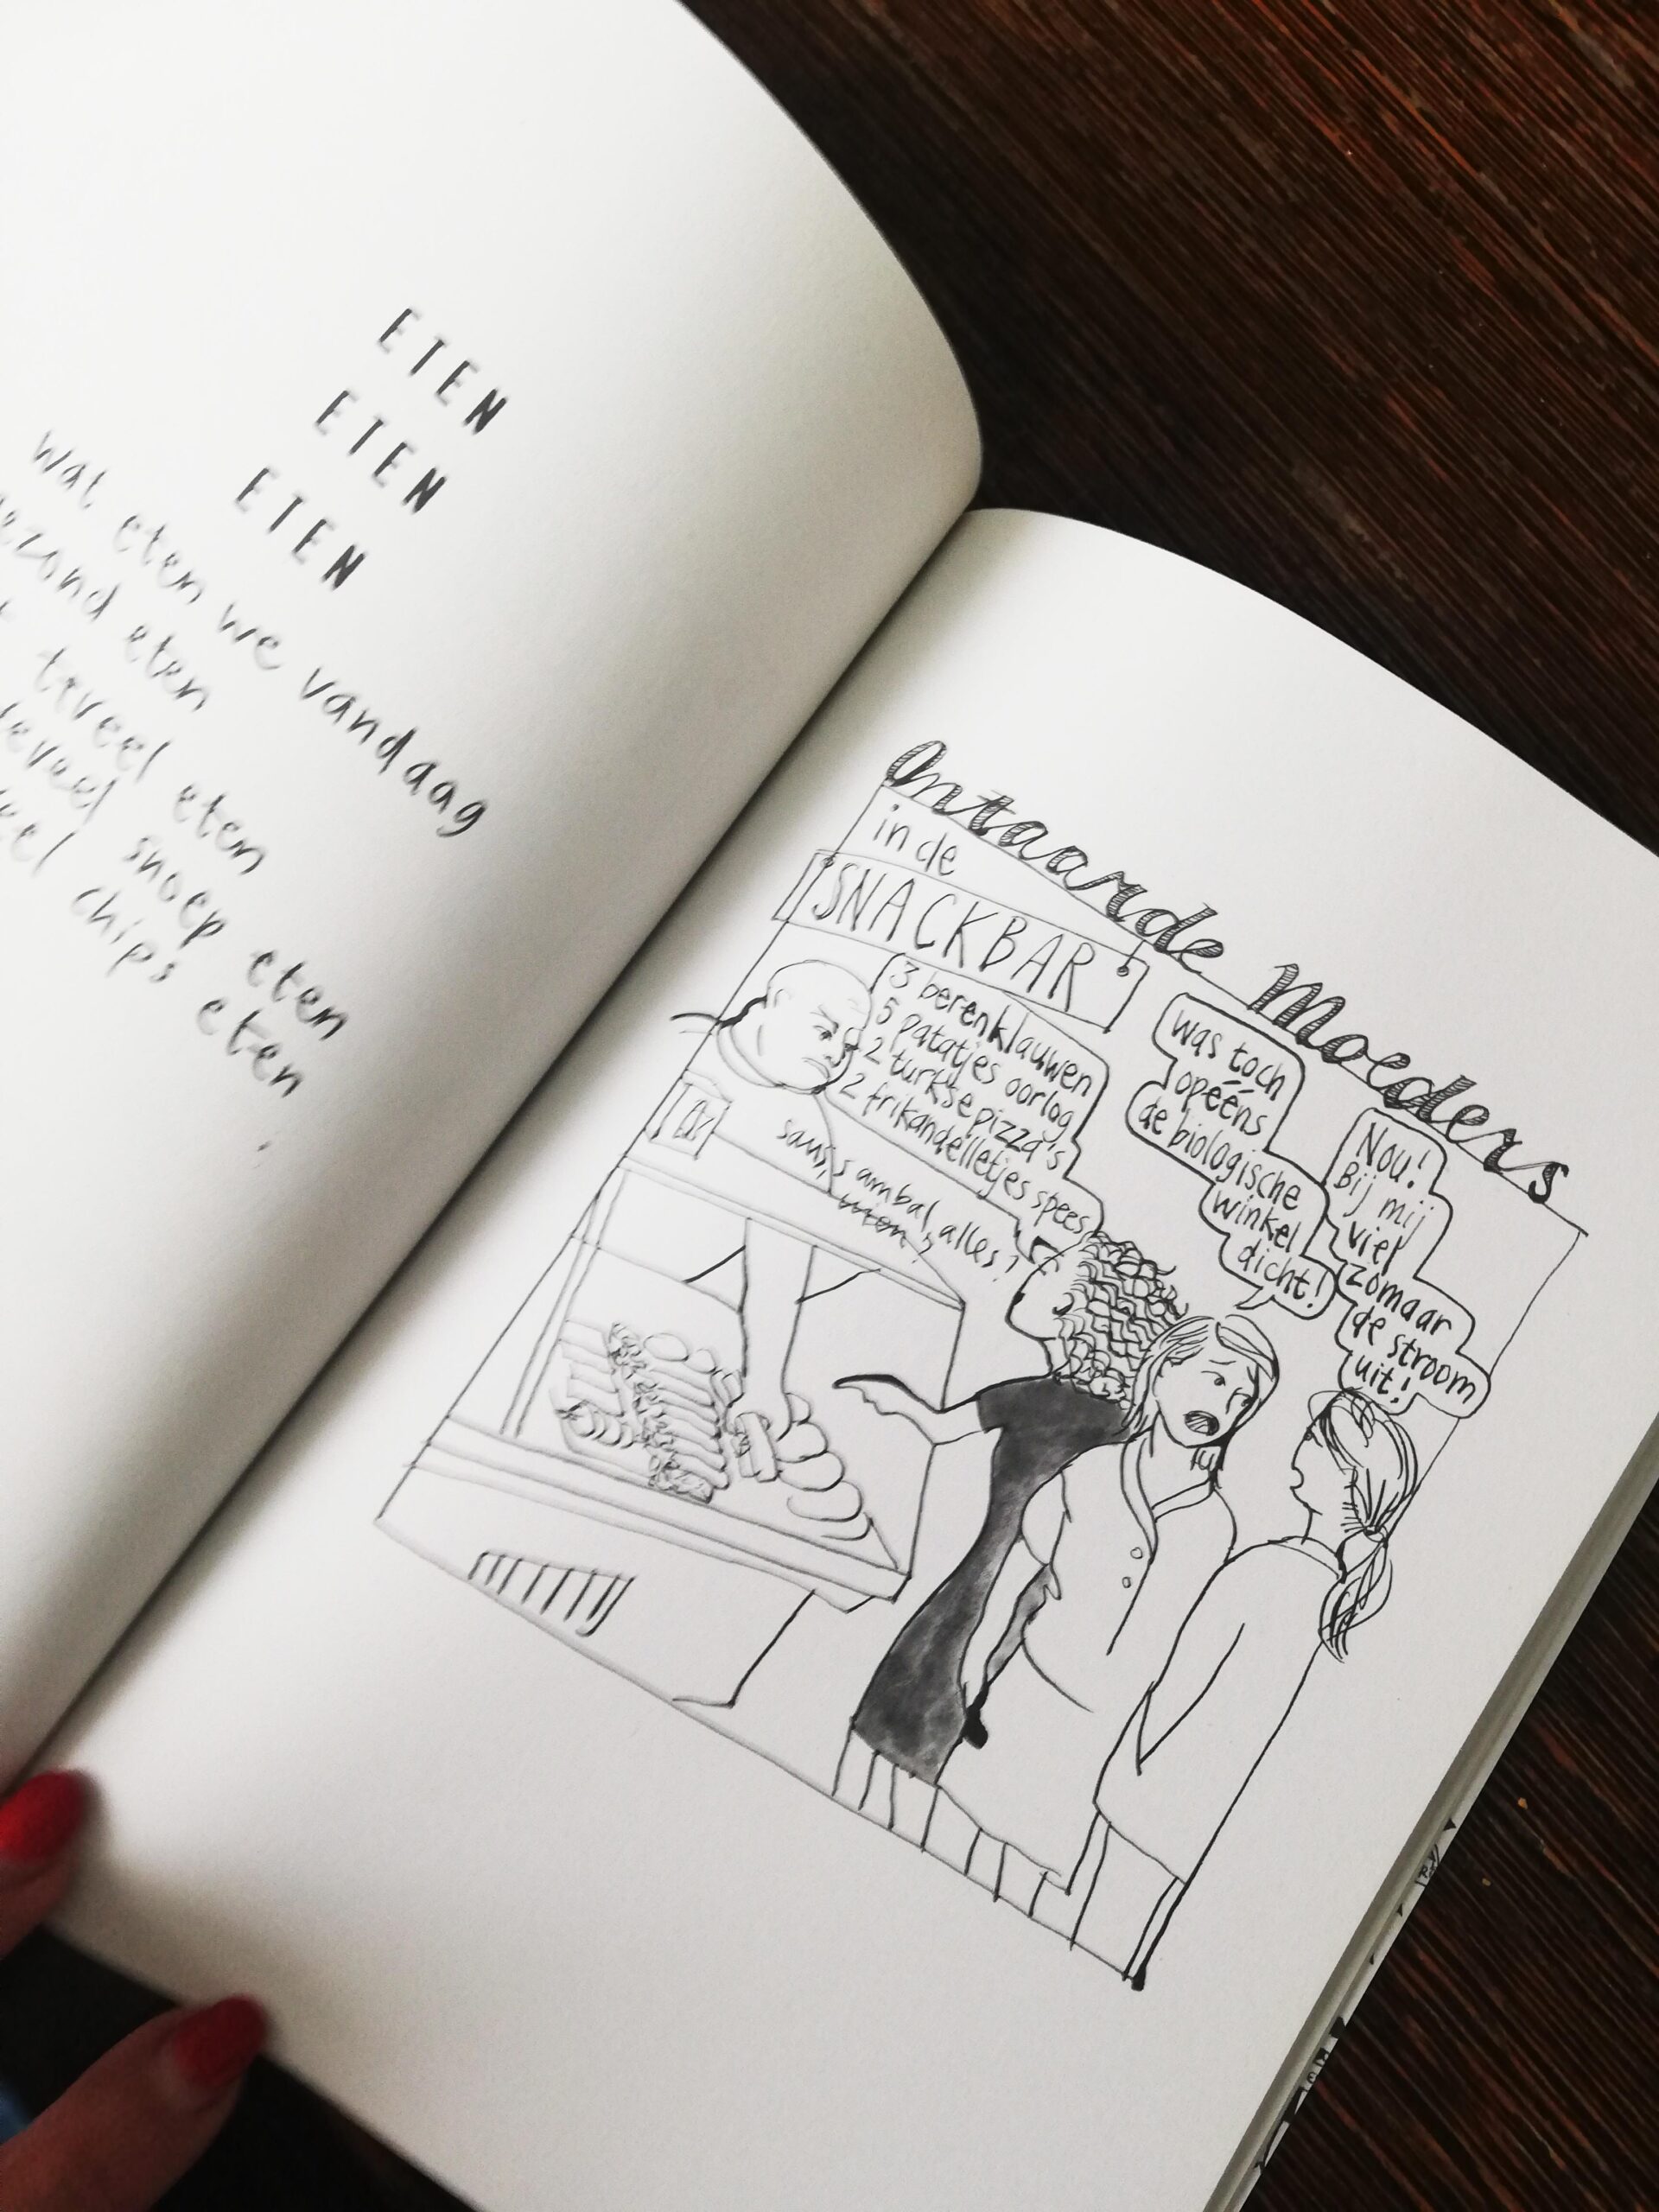 ETEN
ETEN
ETEN
wat eten we vandaag
gezond eten
teveel eten
teveel snoep eten
chips eten
Ontaarde Moeders
in de
SNACKBAR
3 berenklauwen
5 patatjes oorlog
2 turkse pizza's
2 frikandelletjes spees
saus, sambal, alles?
was toch
opééns
de biologische
winkel
dicht!
Nou!
Bij mij
viel
zomaar
de stroom
uit!